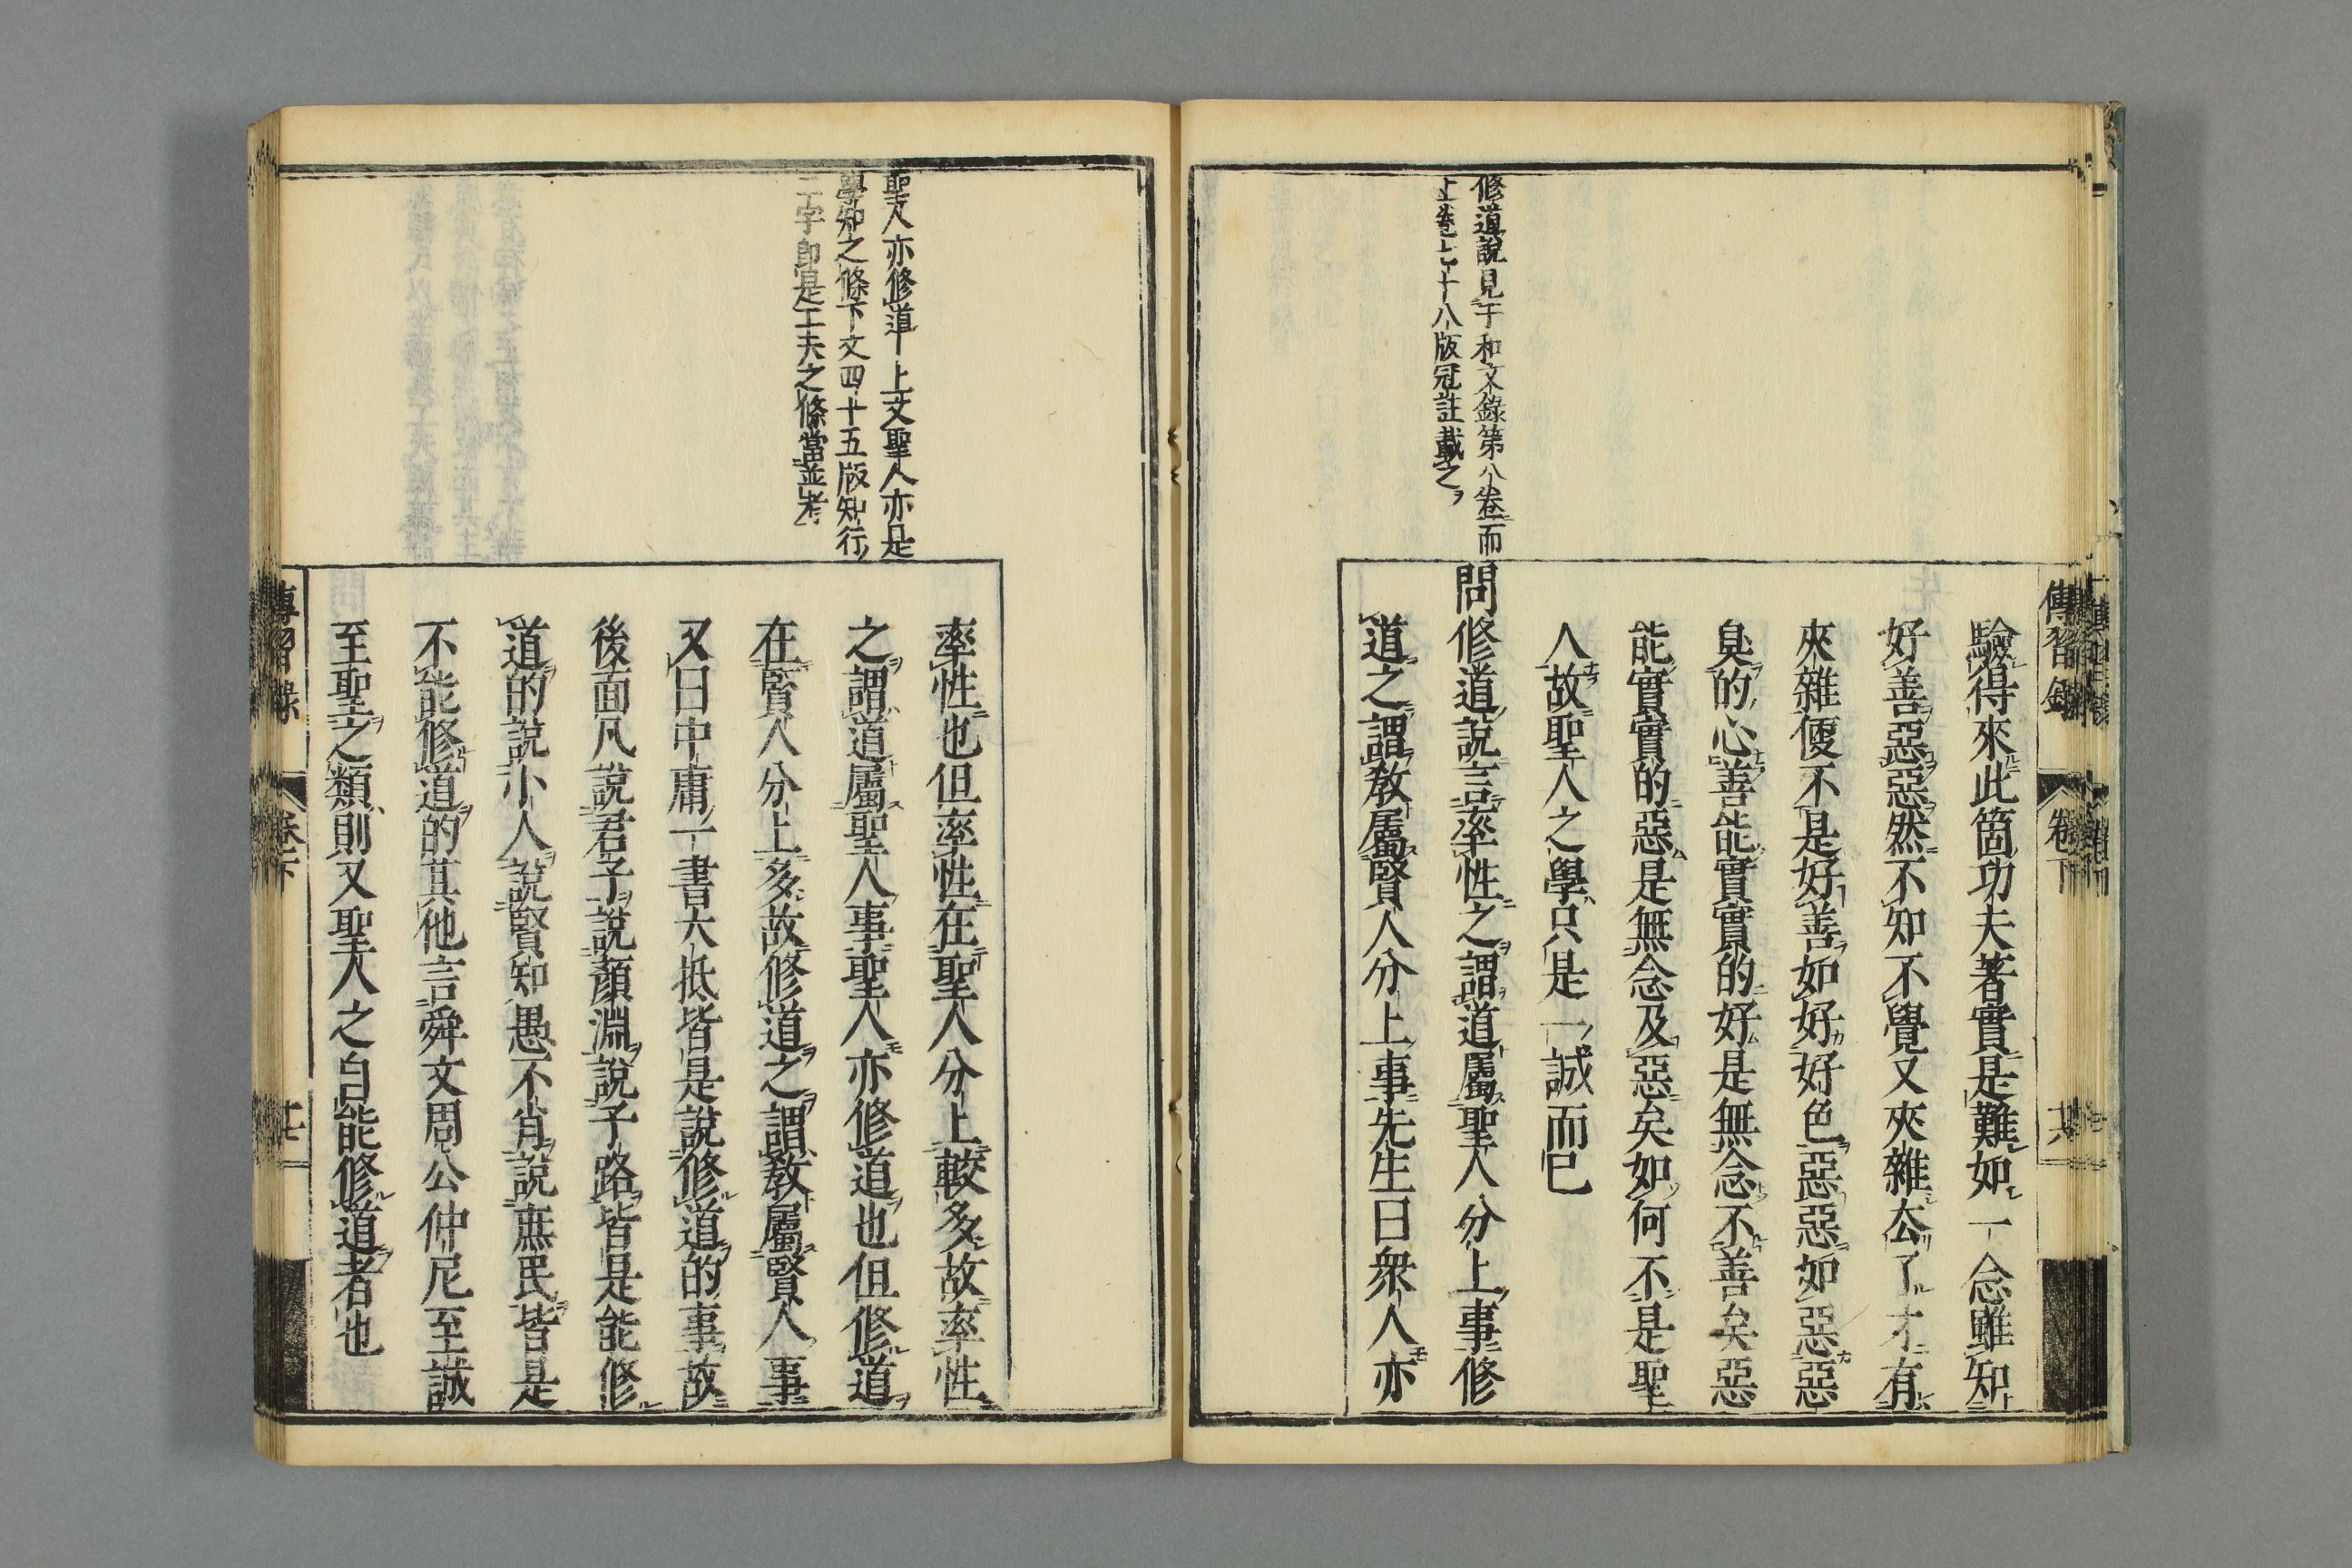 傳習錄
卷下
驗得來此箇功夫著實是難如一念雖知
好善惡惡然不知不覺又夾雜去了才有
夾雜便不是好善如好好色惡惡如惡惡
臭的心善能實實的好是無念不善矣惡
能實實的惡是無念及惡矣如何不是聖
人故聖人之學只是一誠而已
修道說見于和文錄第八卷而
上卷七十八版冠註載之
問修道說言率性之謂道屬聖人分上事修
道之謂教屬賢人分上事先生曰衆人亦
聖人亦修道一上文聖人亦是
學知之條下文四十五版知行
二字即是工夫之條當並考
率性也但率性在聖人分上較多故率性
之謂道屬聖人事聖人亦修道也但修道
在賢人分上多故修道之謂教屬賢人事
又曰中庸一書大抵皆是說修道的事故
後面凡說君子說顏淵說子路皆是能修
道的說小人說賢知愚不肖說庶民皆是
不能修道的其他言舜文周公仲尼至誠
至聖之類則又聖人之自能修道者也
傳習錄
卷下